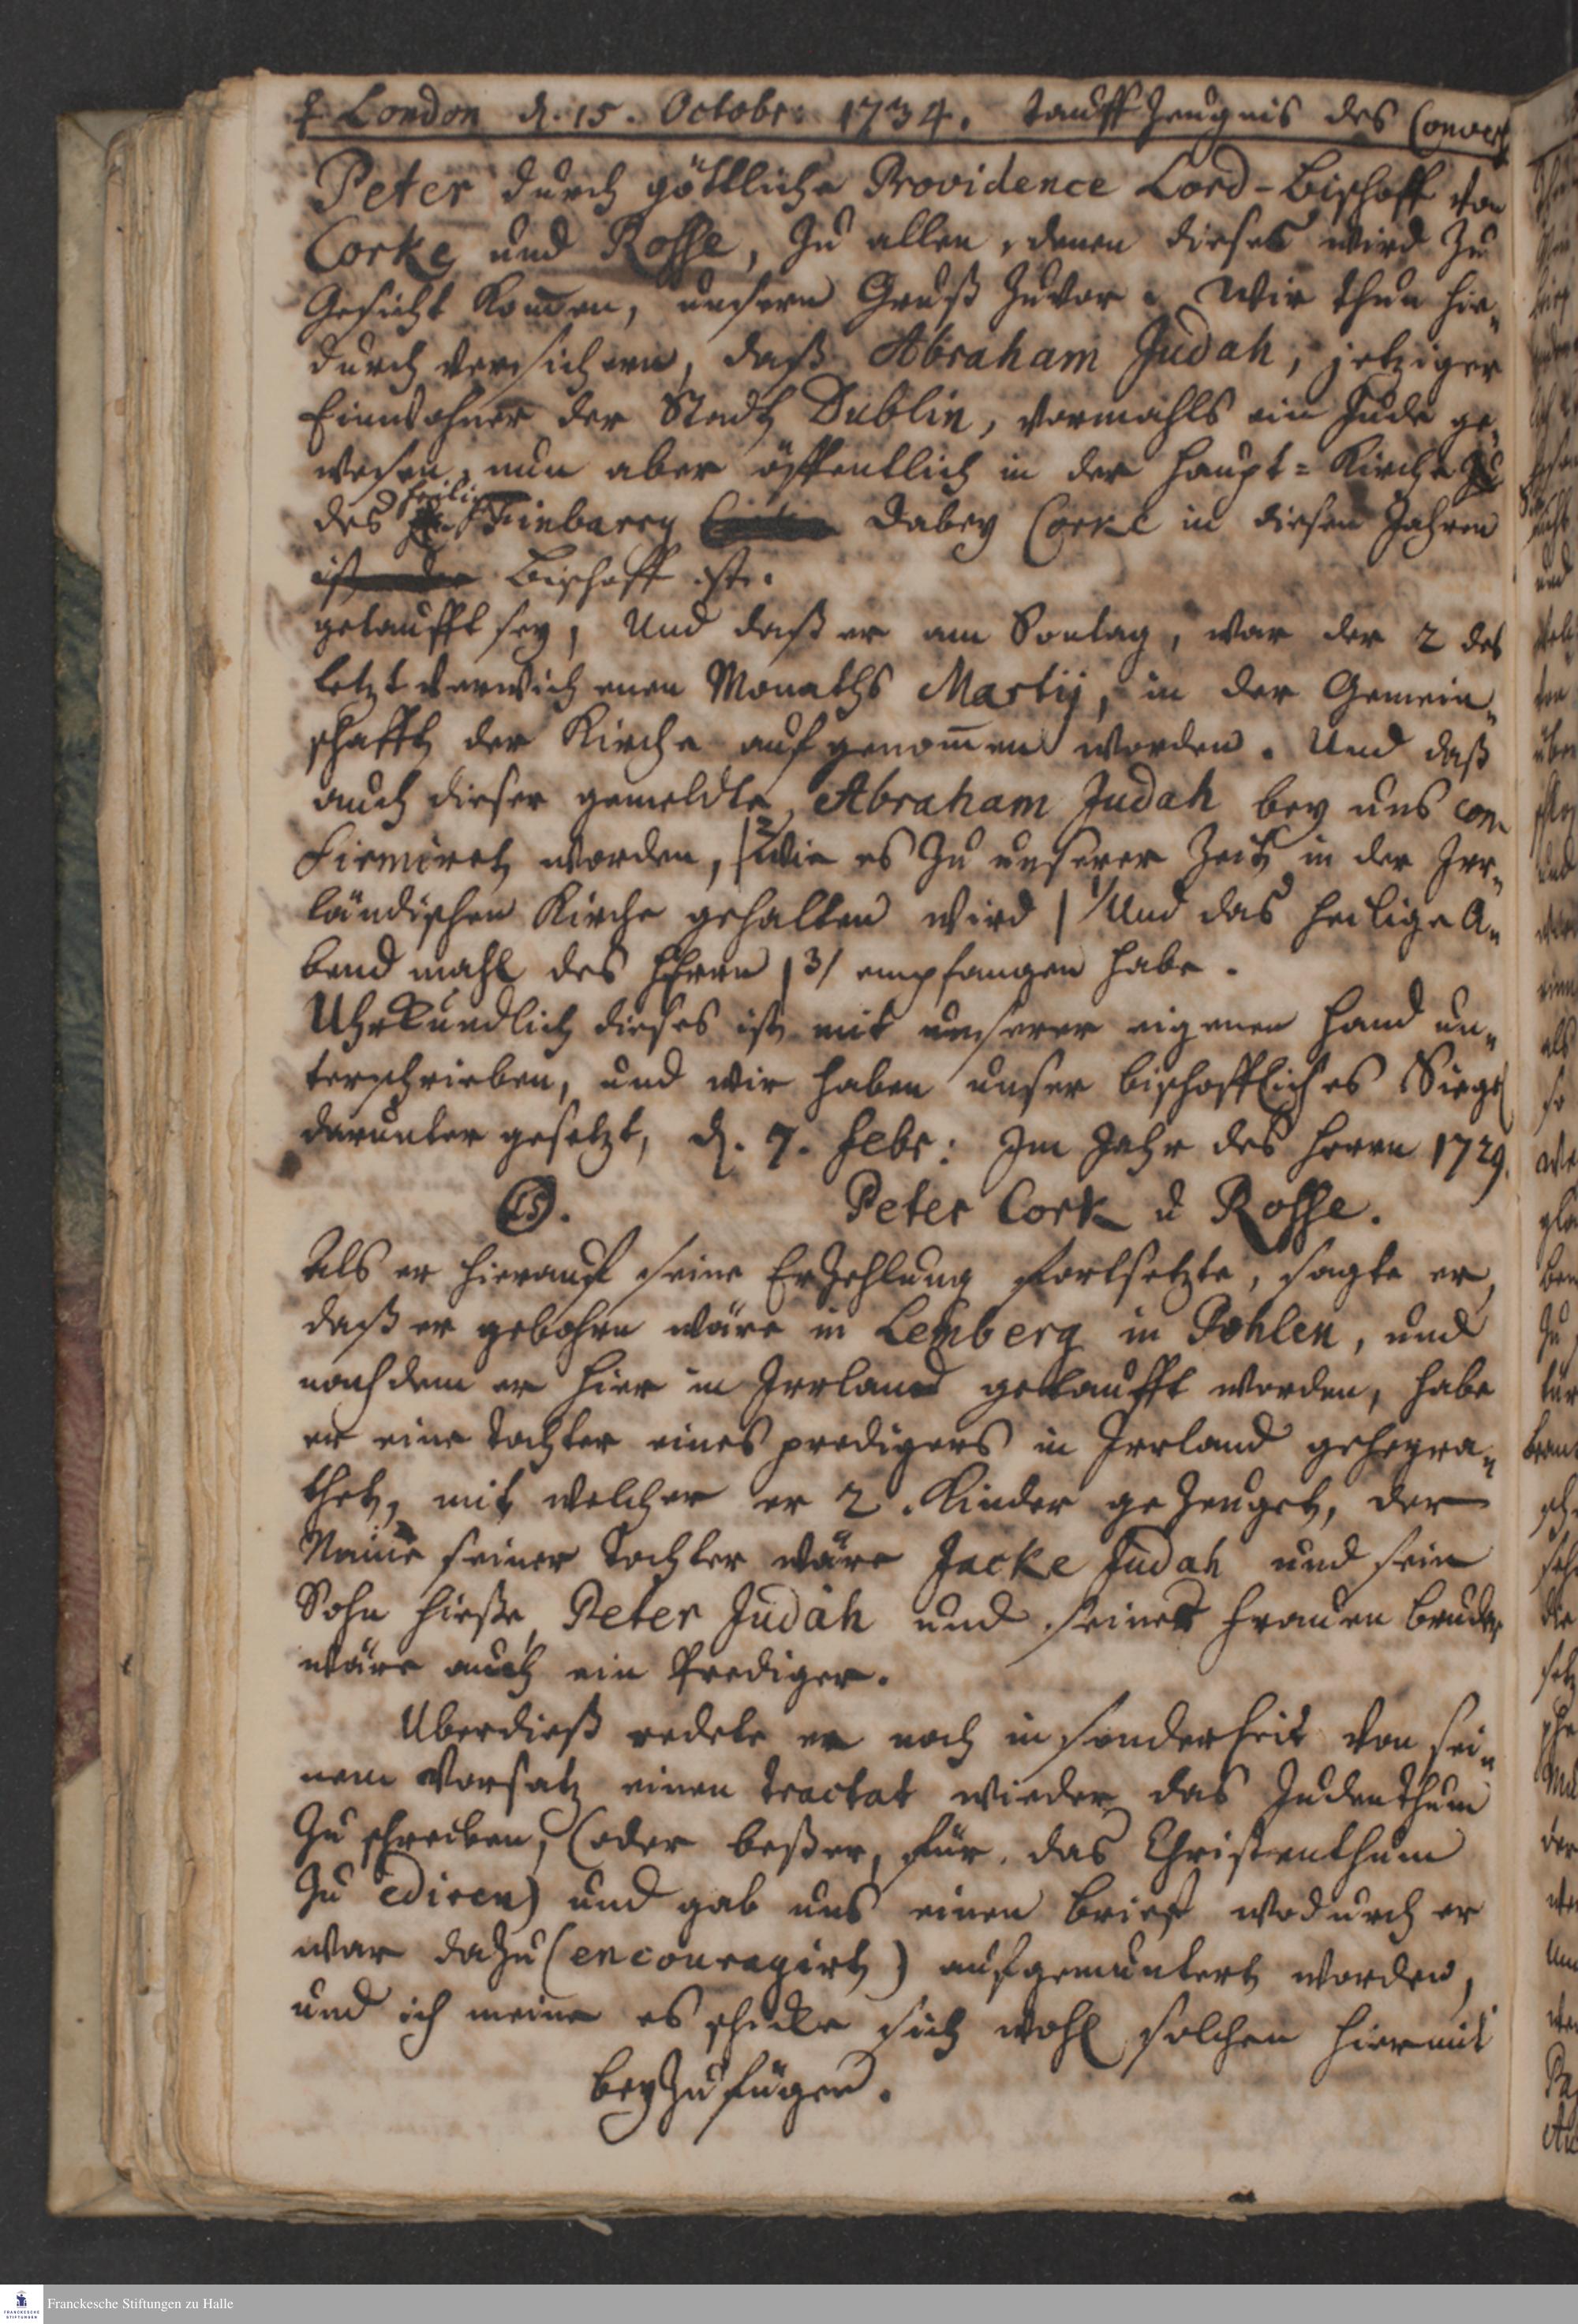 London d. 15. Octobr: 1734. Tauff Zeugnis des Convert
Peter durch göttliche Providence Lord-Bischoff von
Corke und Rosse, Zu allen, denen dieses wird Zu
Gesicht kom̄en, unsern Gruß Zuvor. Wir thun hie„
durch versichern, daß Abraham Judah, jetziger
Einwohner der Stadt Dublin, vormahls ein Jude ge„
wesen, nun aber öffentlich in der Haupt=Kirche
des Heilig Finbarry dabey Corke in diesen Jahren
Bischoff ist.
getaufft sey, Und daß er am Sontag, war der 2 des
letzt verwichenen Monaths Martij, in der Gemein„
schafft der Kirche aufgenom̄en worden. Und daß
auch dieser gemeldte Abraham Judah bey uns con„
firmiret worden, |2 wie es Zu unserer Zeit in der Irr„
ländischen Kirche gehalten wird | 1/ Und das heilige A„
bendmahl des HErrn |3/ empfangen habe.
Uhrkundlich dieses ist mit unserer eigenen Hand un„
terschrieben, und wir haben unser bischoffliches Siegel
darunter gesetzt, d. 7. Febr: Im Jahr des Herrn 1729.
LS. Peter Cork u Rosse.
Als er hierauf seine Erzehlung fortsetzte, sagte er,
daß er gebohren wäre in Lemberg in Pohlen, und
nachdem er hier in Irrland getaufft worden, habe
er eine Tochter eines predigers in Irrland geheyra„
thet, mit welcher er 2. Kinder gezeuget, der
Name seiner Tochter wäre Jacke Judah und sein
Sohn hieße Peter Judah und seiner Frauen Bruder
wäre auch ein Prediger.
Uberdieß redete er noch insonderheit von sei„
nem Vorsatz einen Tractat wieder das Judenthum
Zu schreiben, (oder beßer, für das Christenthum
Zu ediren) und gab uns einen Brief wodurch er
war dazu (encouragirt) aufgemuntert worden,
und ich meine es schicke sich wohl solchen hiermit
beyzufügen.
Franckesche Stiftungen zu Halle